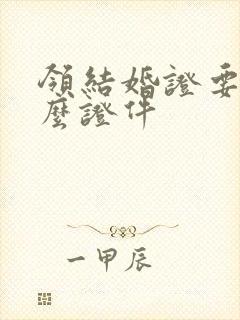 領結婚證要
麼證件
一甲辰